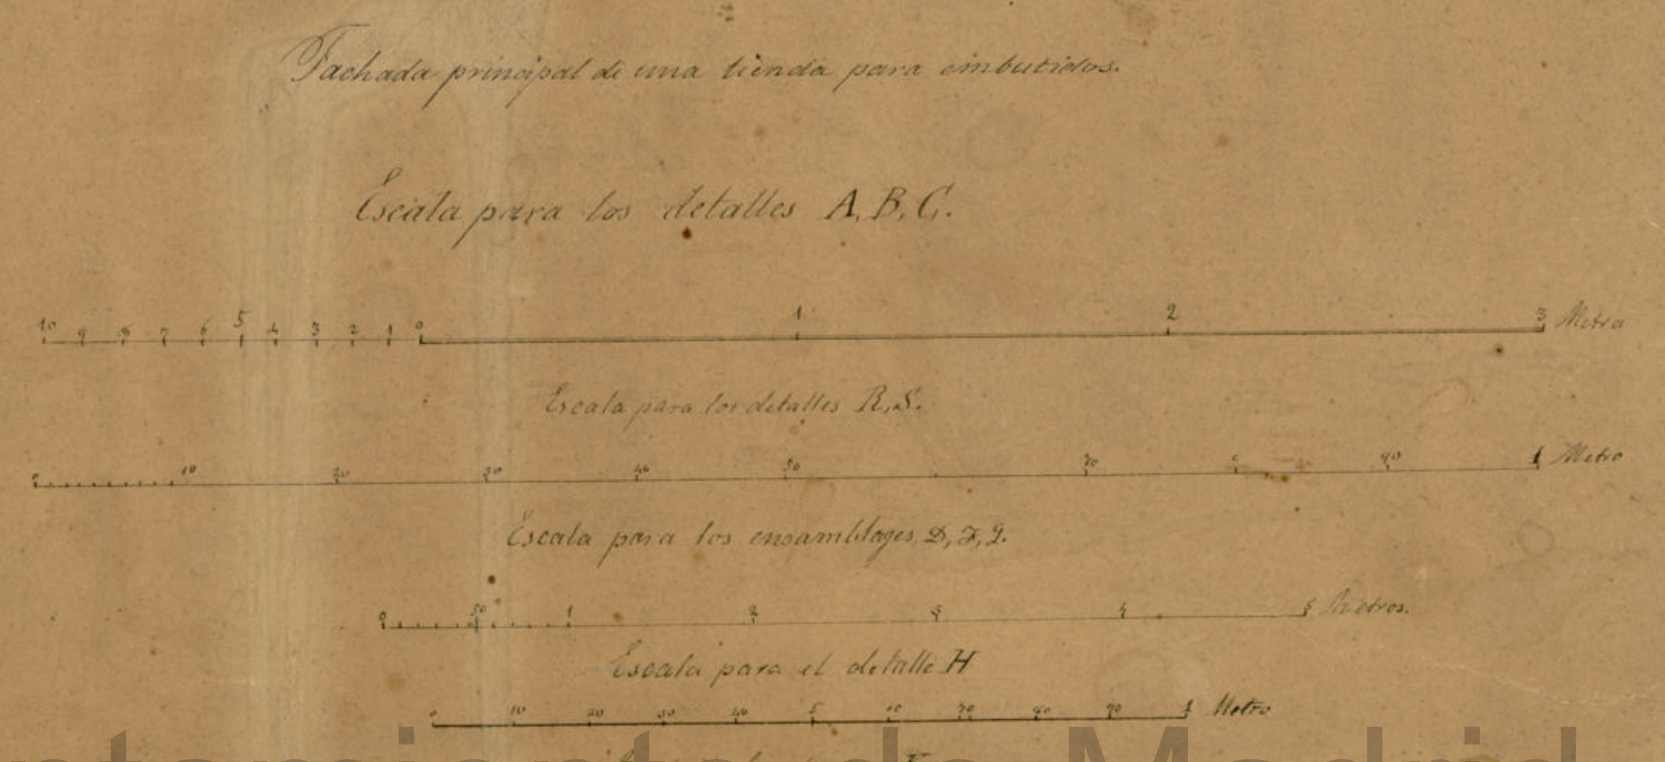 Fachada principal de una tienda para embutidos.
Escala para los detalles A, B, C.
10 9 8 7 6 5 4 3 2 1 0 1 2 3 Metro
Escala para los detalles R, S.
0 10 20 30 40 50 70 90 1 Metro
Escala para los ensamblages D, F, G.
0 50 1 2 3 4 5 Metros.
Escala para el detalle H
0 10 20 30 40 5 60 70 80 90 1 Metro
de Madrid